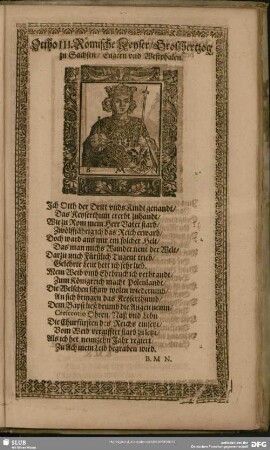 Ottho III. Römische Keyser/ Großhertzog
zu Sachsen/ Engern vnd Westphalen.
Ich Otth der Dritt vnds Kindt genandt/
Das Keyserthumb ererbt zuhandt/
Wie zu Rom mein Herr Vater starb/
Zwölffjährig ich das Reich erwarb/
Doch ward aus mir ein solcher Helt/
Das man michs Wunder nent der Welt/
Darzu mich Fürstlich Tugent trieb/
Gelehrte Leut hett ich sehr lieb.
Mein Weib vmb Ehebruch ich verbrandt/
Zum Königreich macht Polenlandt.
Die Welschen wolten wiederumb/
An sich bringen das Keyserthumb.
Dem Bapst ließ die Augen
Ohren, Naß vnd
Die Churfürsten des Reichs einsetzt/
Vom Weib vergifftet starb zuletzt.
Als ich het neunzehn Jahr regiert
Zu Ach mein Leib begraben wird.
B. M N.
SLUB